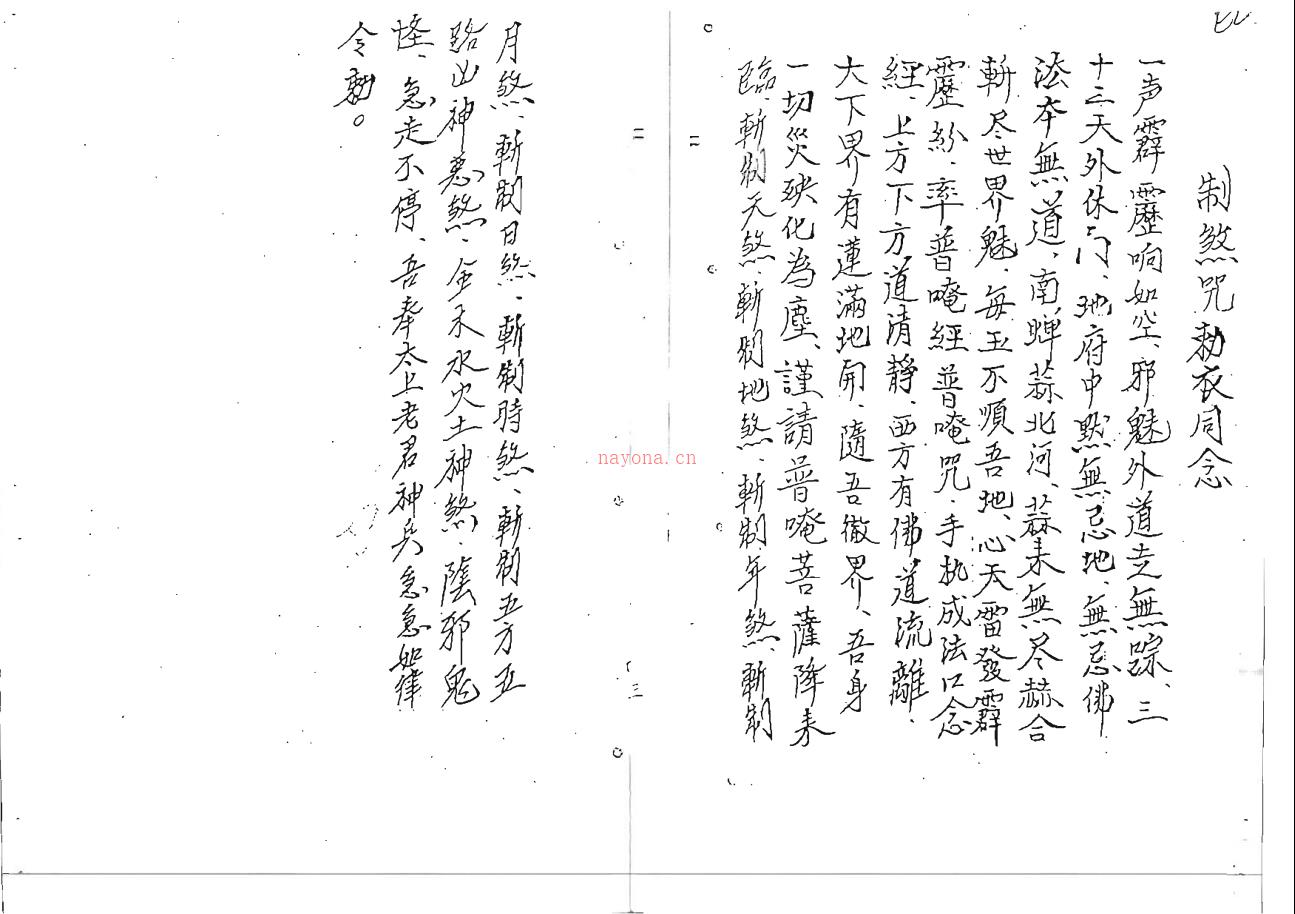 制煞咒勅衣同念
一声霹靂响如空、邪魅外道走無踪、三
十三天外休门、地府中默無忌地、無忌佛
法本無道、南蝉蒜北河、蒜来無尽赫合
斬尽世界魅、每玉不順吾地、心天雷發霹
靂紛、率普唵經普唵咒、手执成法口念
經、上方下方道清静、西方有佛道流離、
大下界有蓮滿地開、隨吾徹界、吾身
一切災殃化為塵、謹請普唵菩薩降来
臨、斬制天煞、斬制地煞、斬制年煞、斬制
月煞、斬制日煞、斬制時煞、斬制五方五
路凶神惡煞、金木水火土神煞、陰邪鬼
怪、急走不停、吾奉太上老君神兵急急如律
令勅。
二
二
三
nayona.cn